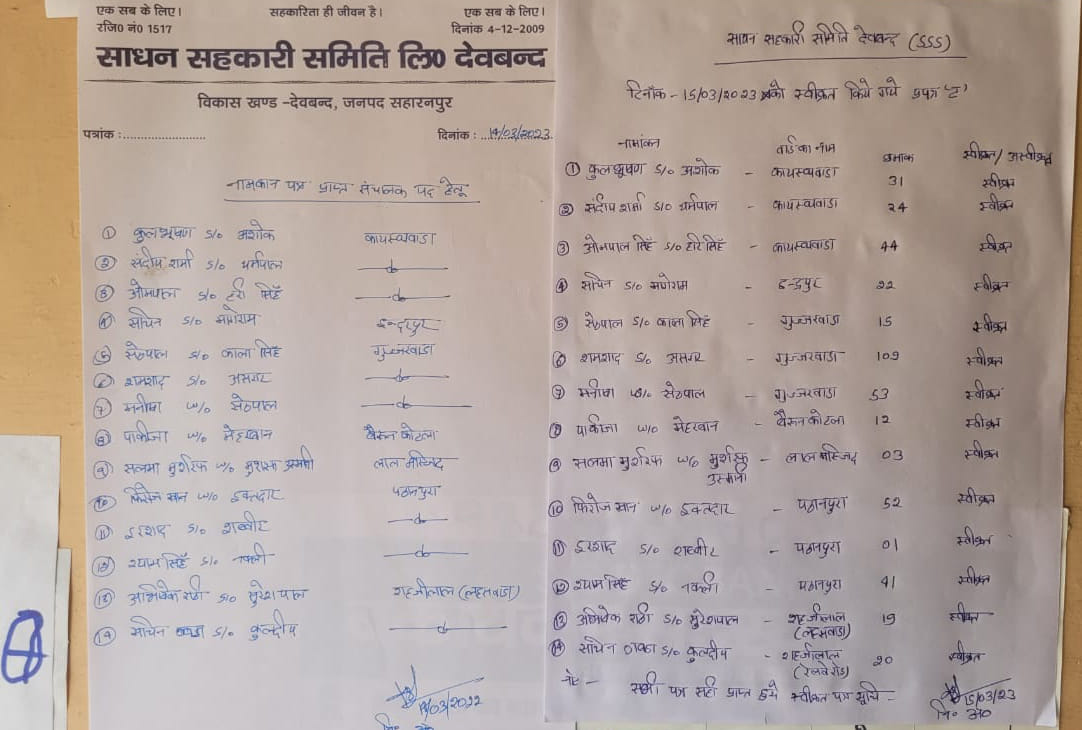 एक सब के लिए।
सहकारिता ही जीवन है।
एक सब के लिए।
रजि0 नं0 1517
दिनांक 4-12-2009
साधन सहकारी समिति लि0 देवबन्द
विकास खण्ड -देवबन्द, जनपद सहारनपुर
पत्रांक :........................
दिनांक : 14/03/2023
नामांकन पत्र प्राप्त संचालक पद हेतू
① कुलभूषण s/o अशोक कायस्थवाडा
② संदीप शर्मा s/o धर्मपाल —do—
③ ओमपाल s/o हरी सिंह —do—
④ सचिन s/o मांगेराम इन्द्रपुर
⑤ सेठपाल s/o काला सिंह गुज्जरवाडा
⑥ शमशाद s/o असगर —do—
⑦ मनीषा w/o सेठपाल —do—
⑧ पाकीजा w/o मेहरबान बैरून कोटला
⑨ सलमा मुशर्रफ w/o मुशर्रफ उस्मानी लाल मस्जिद
⑩ फिरोज खान w/o इक्तदार पठानपुरा
⑪ इरशाद s/o शब्बीर —do—
⑫ श्याम सिंह s/o नकली —do—
⑬ अभिषेक राठी s/o सुरेशपाल शाहजीलाल (लहसवाडा)
⑭ सचिन s/o कुलदीप —do—
14/03/2022
नि० अ०
साधन सहकारी समिति देवबन्द (SSS)
दिनाँक - 15/03/2023 को स्वीक्रत किये गये प्रपत्र
नामांकन वार्ड का नाम क्रमांक स्वीक्रत/अस्वीक्रत
① कुलभूषण s/o अशोक - कायस्थवाडा 31 स्वीक्रत
② संदीप शर्मा s/o धर्मपाल - कायस्थवाडा 24 स्वीक्रत
③ ओमपाल सिंह s/o हरि सिंह - कायस्थवाडा 44 स्वीक्रत
④ सचिन s/o मांगेराम - इन्द्रपुर 22 स्वीक्रत
⑤ सेठपाल s/o काला सिंह - गुज्जरवाडा 15 स्वीक्रत
⑥ शमशाद s/o असगर - गुज्जरवाडा 109 स्वीक्रत
⑦ मनीषा w/o सेठपाल - गुज्जरवाडा 53 स्वीक्रत
⑧ पाकीजा w/o मेहरबान - बैरून कोटला 12 स्वीक्रत
⑨ सलमा मुशर्रफ w/o मुशर्रफ - लाल मस्जिद 03 स्वीक्रत
उस्मानी
⑩ फिरोज खान w/o इक्तदार - पठानपुरा 52 स्वीक्रत
⑪ इरशाद s/o शब्बीर - पठानपुरा 01 स्वीक्रत
⑫ श्याम सिंह s/o नकली - पठानपुरा 41 स्वीक्रत
⑬ अभिषेक राठी s/o सुरेशपाल - शाहजीलाल 19 स्वीक्रत
(लहसवाडा)
⑭ सचिन s/o कुलदीप - शाहजीलाल 20 स्वीक्रत
(रेलवे रोड)
नोट - सभी पत्र सही प्राप्त हुये स्वीक्रत पत्र सूचि -
15/03/23
नि० अ०